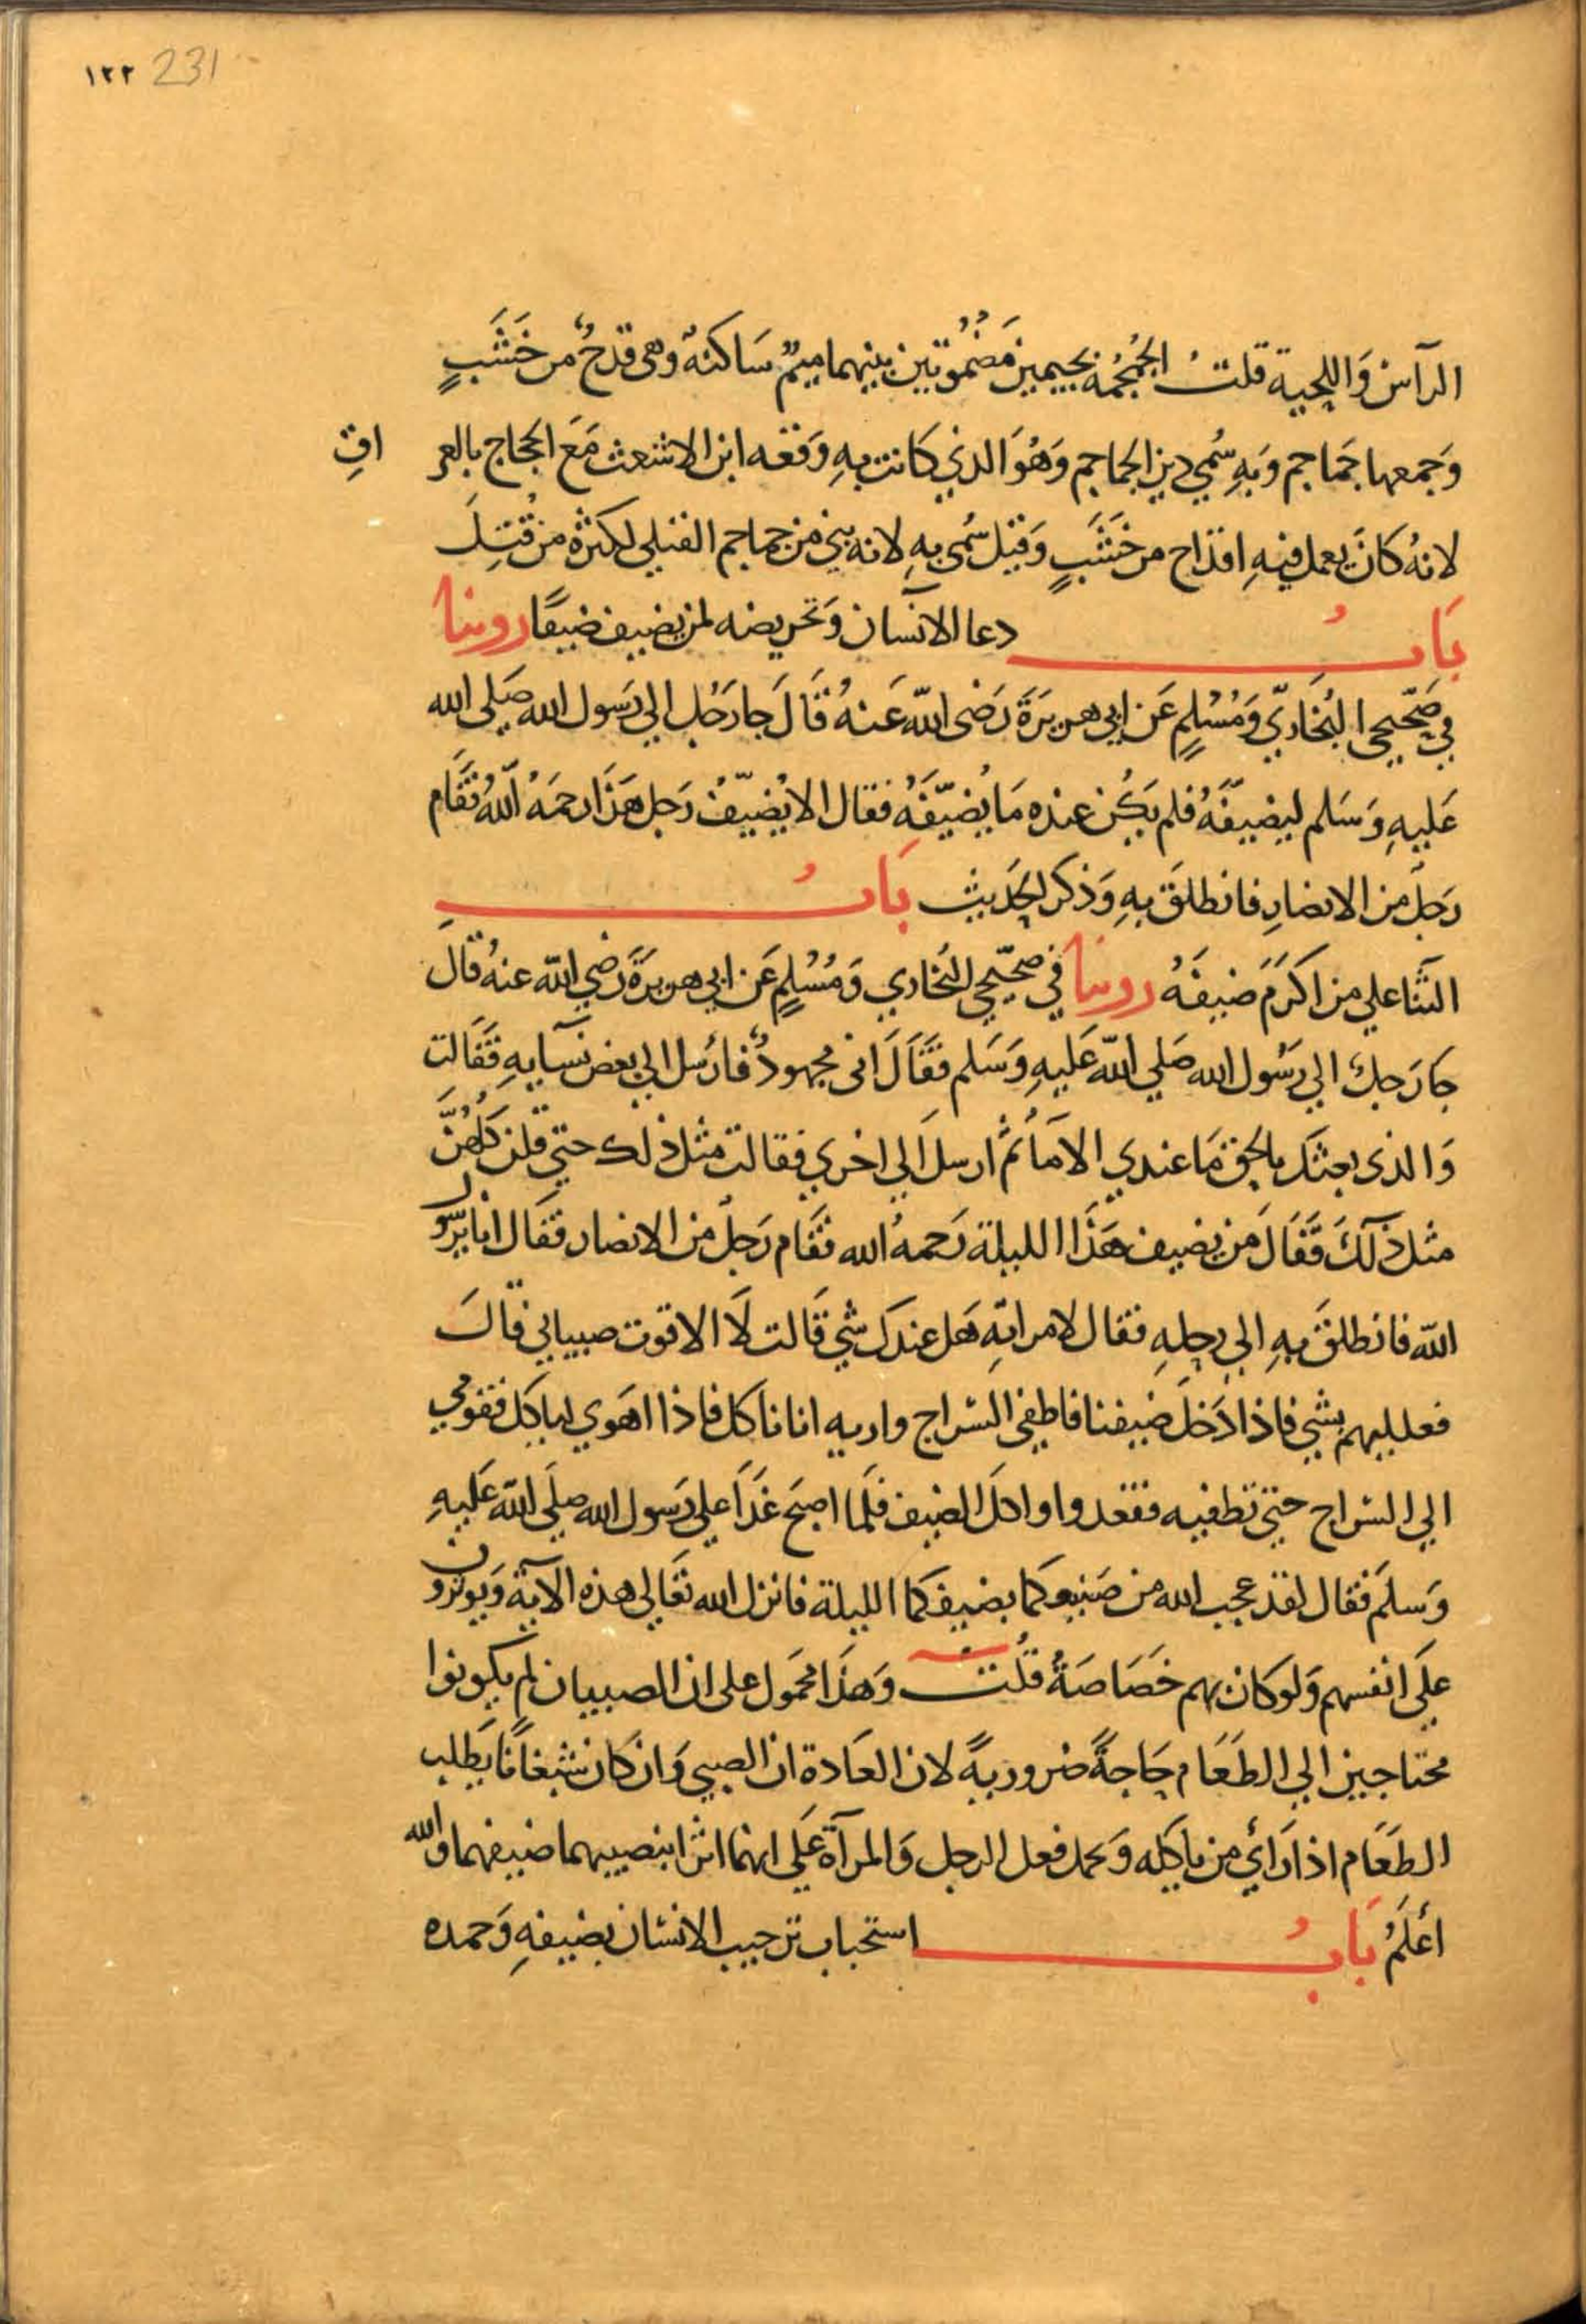 ١٢٢ 231
الرآس وَاللحية قلتُ الجُمْجُمة بجيمين مَضمُومتين بينهما ميمٌ سَاكنةٌ وهى قدحٌ من خَشَبٍ
وَجمعها جَماجم وَبهِ سُمي دير الجماجم وَهُوَ الذي كَانت بهِ وَقعه ابن الاشعث مَعَ الحجاج بالعر اقِ
لانهُ كانَ يعمل فيهِ اقداح من خَشَبٍ وَقيل سُمى بهِ لانه بني من جماجم القتلي لكثرة من قُتِلَ
بَابُ دعا الانسان وَتحريضه لمن يضيف ضيفًا روينا
في صَحّيحي البُخَاريّ وَمُسْلِمٍ عَن ابي هريرَةَ رَضى الله عَنهُ قَالَ جا رَجُل الي رَسول الله صَلى الله
عَليهِ وَسَلم ليضيّفَهُ فلم يَكُن عنده مَا يُضيّفَهُ فقال الا يُضيّفُ رَجل هَذَا رحمَهُ اللّهُ فقَام
رَجل من الانصارِ فانطلقَ بهِ وَذكر الحَديث بَابُ
الثنا علي من اكرَمَ ضيفَهُ روينا في صَحّيحي البُخاري وَمُسْلِمٍ عَن ابي هريرَةَ رَضي الله عنهُ قال
جا رَجل الي رَسُول الله صَلي الله عَليهِ وَسَلم فقَالَ انى مجهودٌ فارْسل الي بعض نسآيهِ فقَالت
وَالذى بعثك بالحق مَا عندي الا مَا ثمّ ارسلَ الي اخري فقالت مثل ذلك حتي قلن كلهُنَّ
مثل ذلكَ فقَالَ من يضيف هَذَا الليلة رَحمهُ الله فقَام رَجل من الانصار فقَال انا يرسول
الله فانطلقَ بهِ الي رحلهِ فقال لامراتهِ هَل عندك شي قَالت لَا الا قوت صبياني قال
فعلليهم بشي فاذا دَخل ضيفنا فاطفي السراج واريه انا ناكل فاذا اهَوي لياكل فقومي
الي السراج حتي تطفيه فقعدوا واكل الضيف فلَما اصبَح غدَا علي رَسول الله صلَى الله عَليهِ
وَسلمَ فقال لقد عجب الله من صَنيعكما بضيفكما الليلة فانزل الله تعَالى هذه الآية وَيوثرون
علَى انفسهم وَلو كان بهم خَصَاصَةٌ قلتُ وَهَذَا محمَول على ان الصبيان لم يكونوا
محتاجين الي الطَعَام حَاجةً ضروريةً لان العَادة ان الصبي وَان كان شبعانًا يَطلب
الطَعَام اذا رَائ من ياكله وَيحمل فعل الرجل وَالمرآة عَلي انهما اثرا بنصيبهما ضيفهما والله
أعْلَمُ بَابُ استحباب ترحيب الانسان بضيفهِ وَحمده